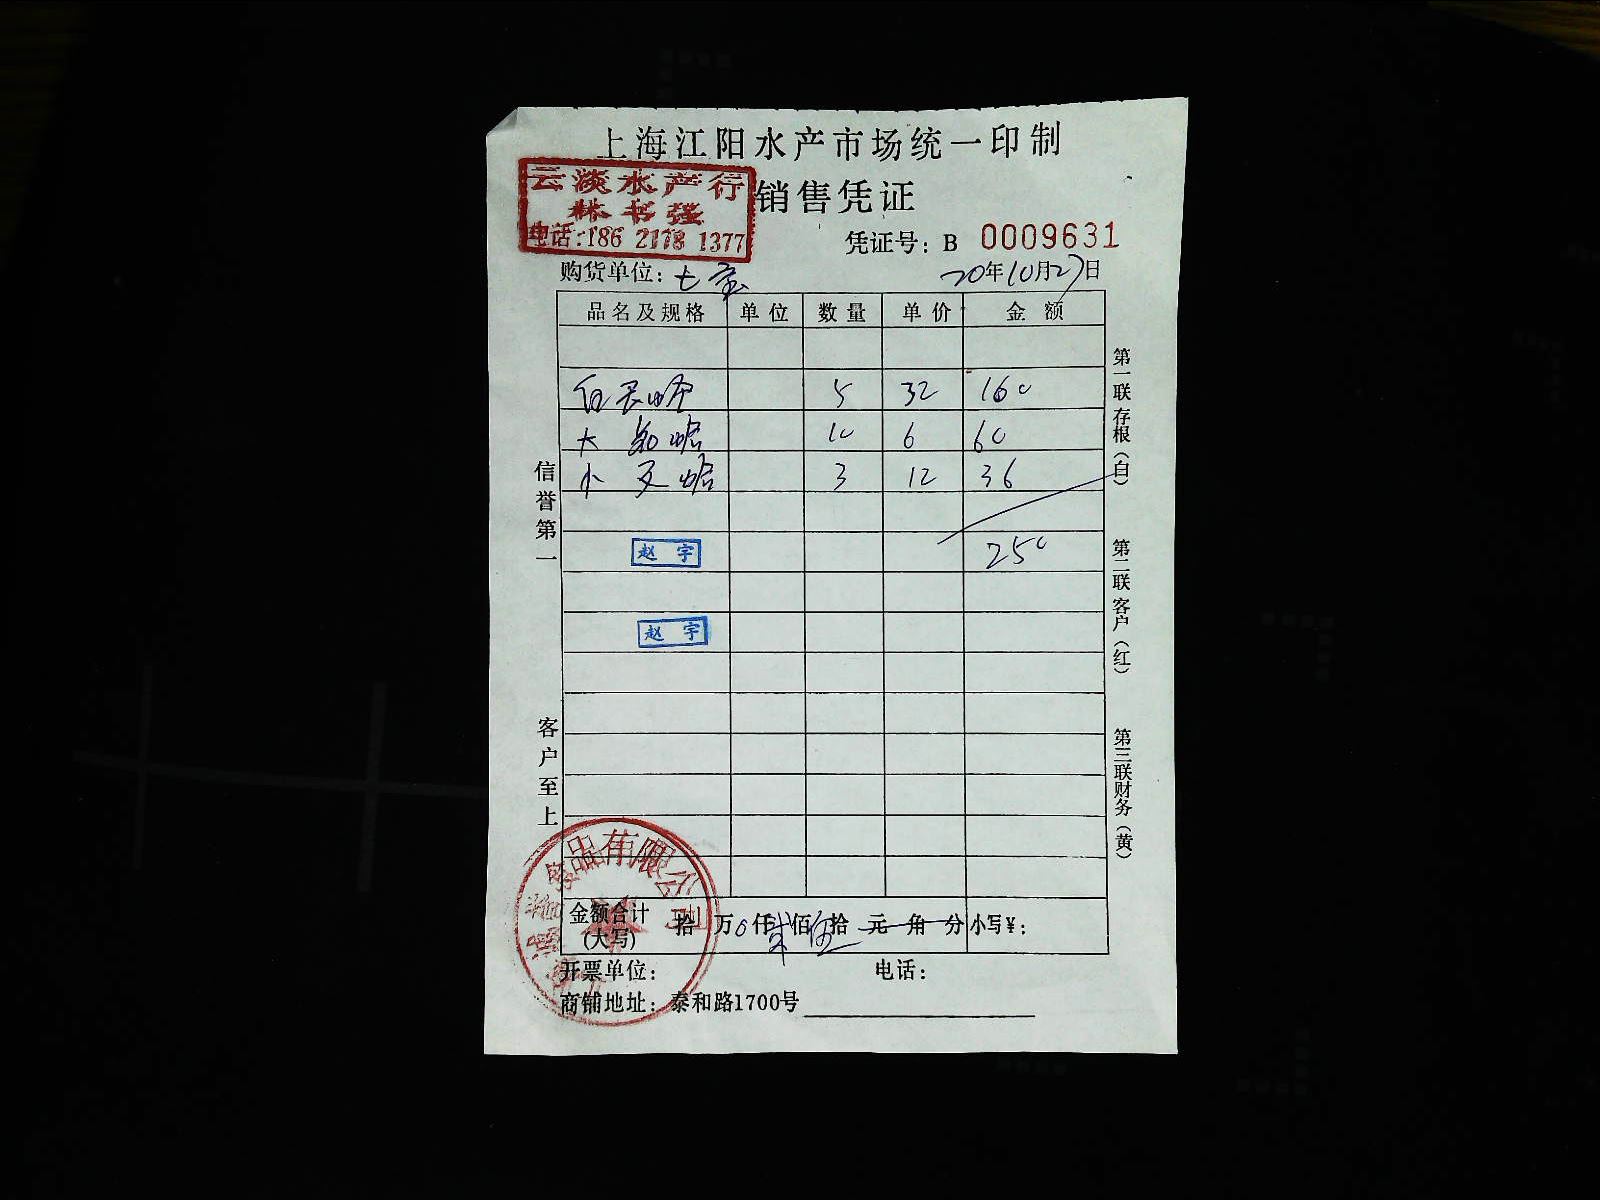 上海江阳水产市场统一印制
云淡水产行
林书强
电话:186 2178 1377
销售凭证
凭证号: B 0009631
购货单位: 七宝
20年10月27日
品名及规格 单位 数量 单价 金额
5 32 160
大 蛤 10 6 60
小 蛤 3 12 36
赵宇 250
赵宇
信誉第一
客户至上
第一联存根(白)
第二联客户(红)
第三联财务(黄)
金额合计(大写) 拾 万 仟 佰 拾 元 角 分 小写¥:
食品有限公司
开票单位: 电话:
商铺地址: 泰和路1700号